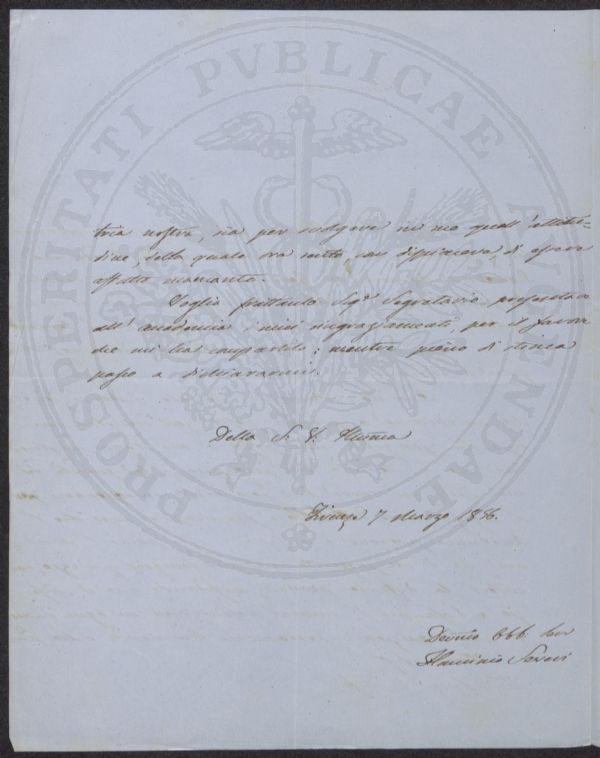 PROSPERITATI PVBLICAE AVGENDAE
tria nostra, sia per svolgere in me quell'attitu-
dine, della quale ora sento, con dispiacere, di essere
affatto mancante.
Voglia frattanto Sigr Segretario, presentare
all' Accademia i miei ringraziamenti, per il favore
che mi ha compartito; mentre pieno di stima
passo a dichiararmi.
Della S. V. Illma
Firenze 7 Marzo 1856.
Devmo Obb
Flaminio Severi